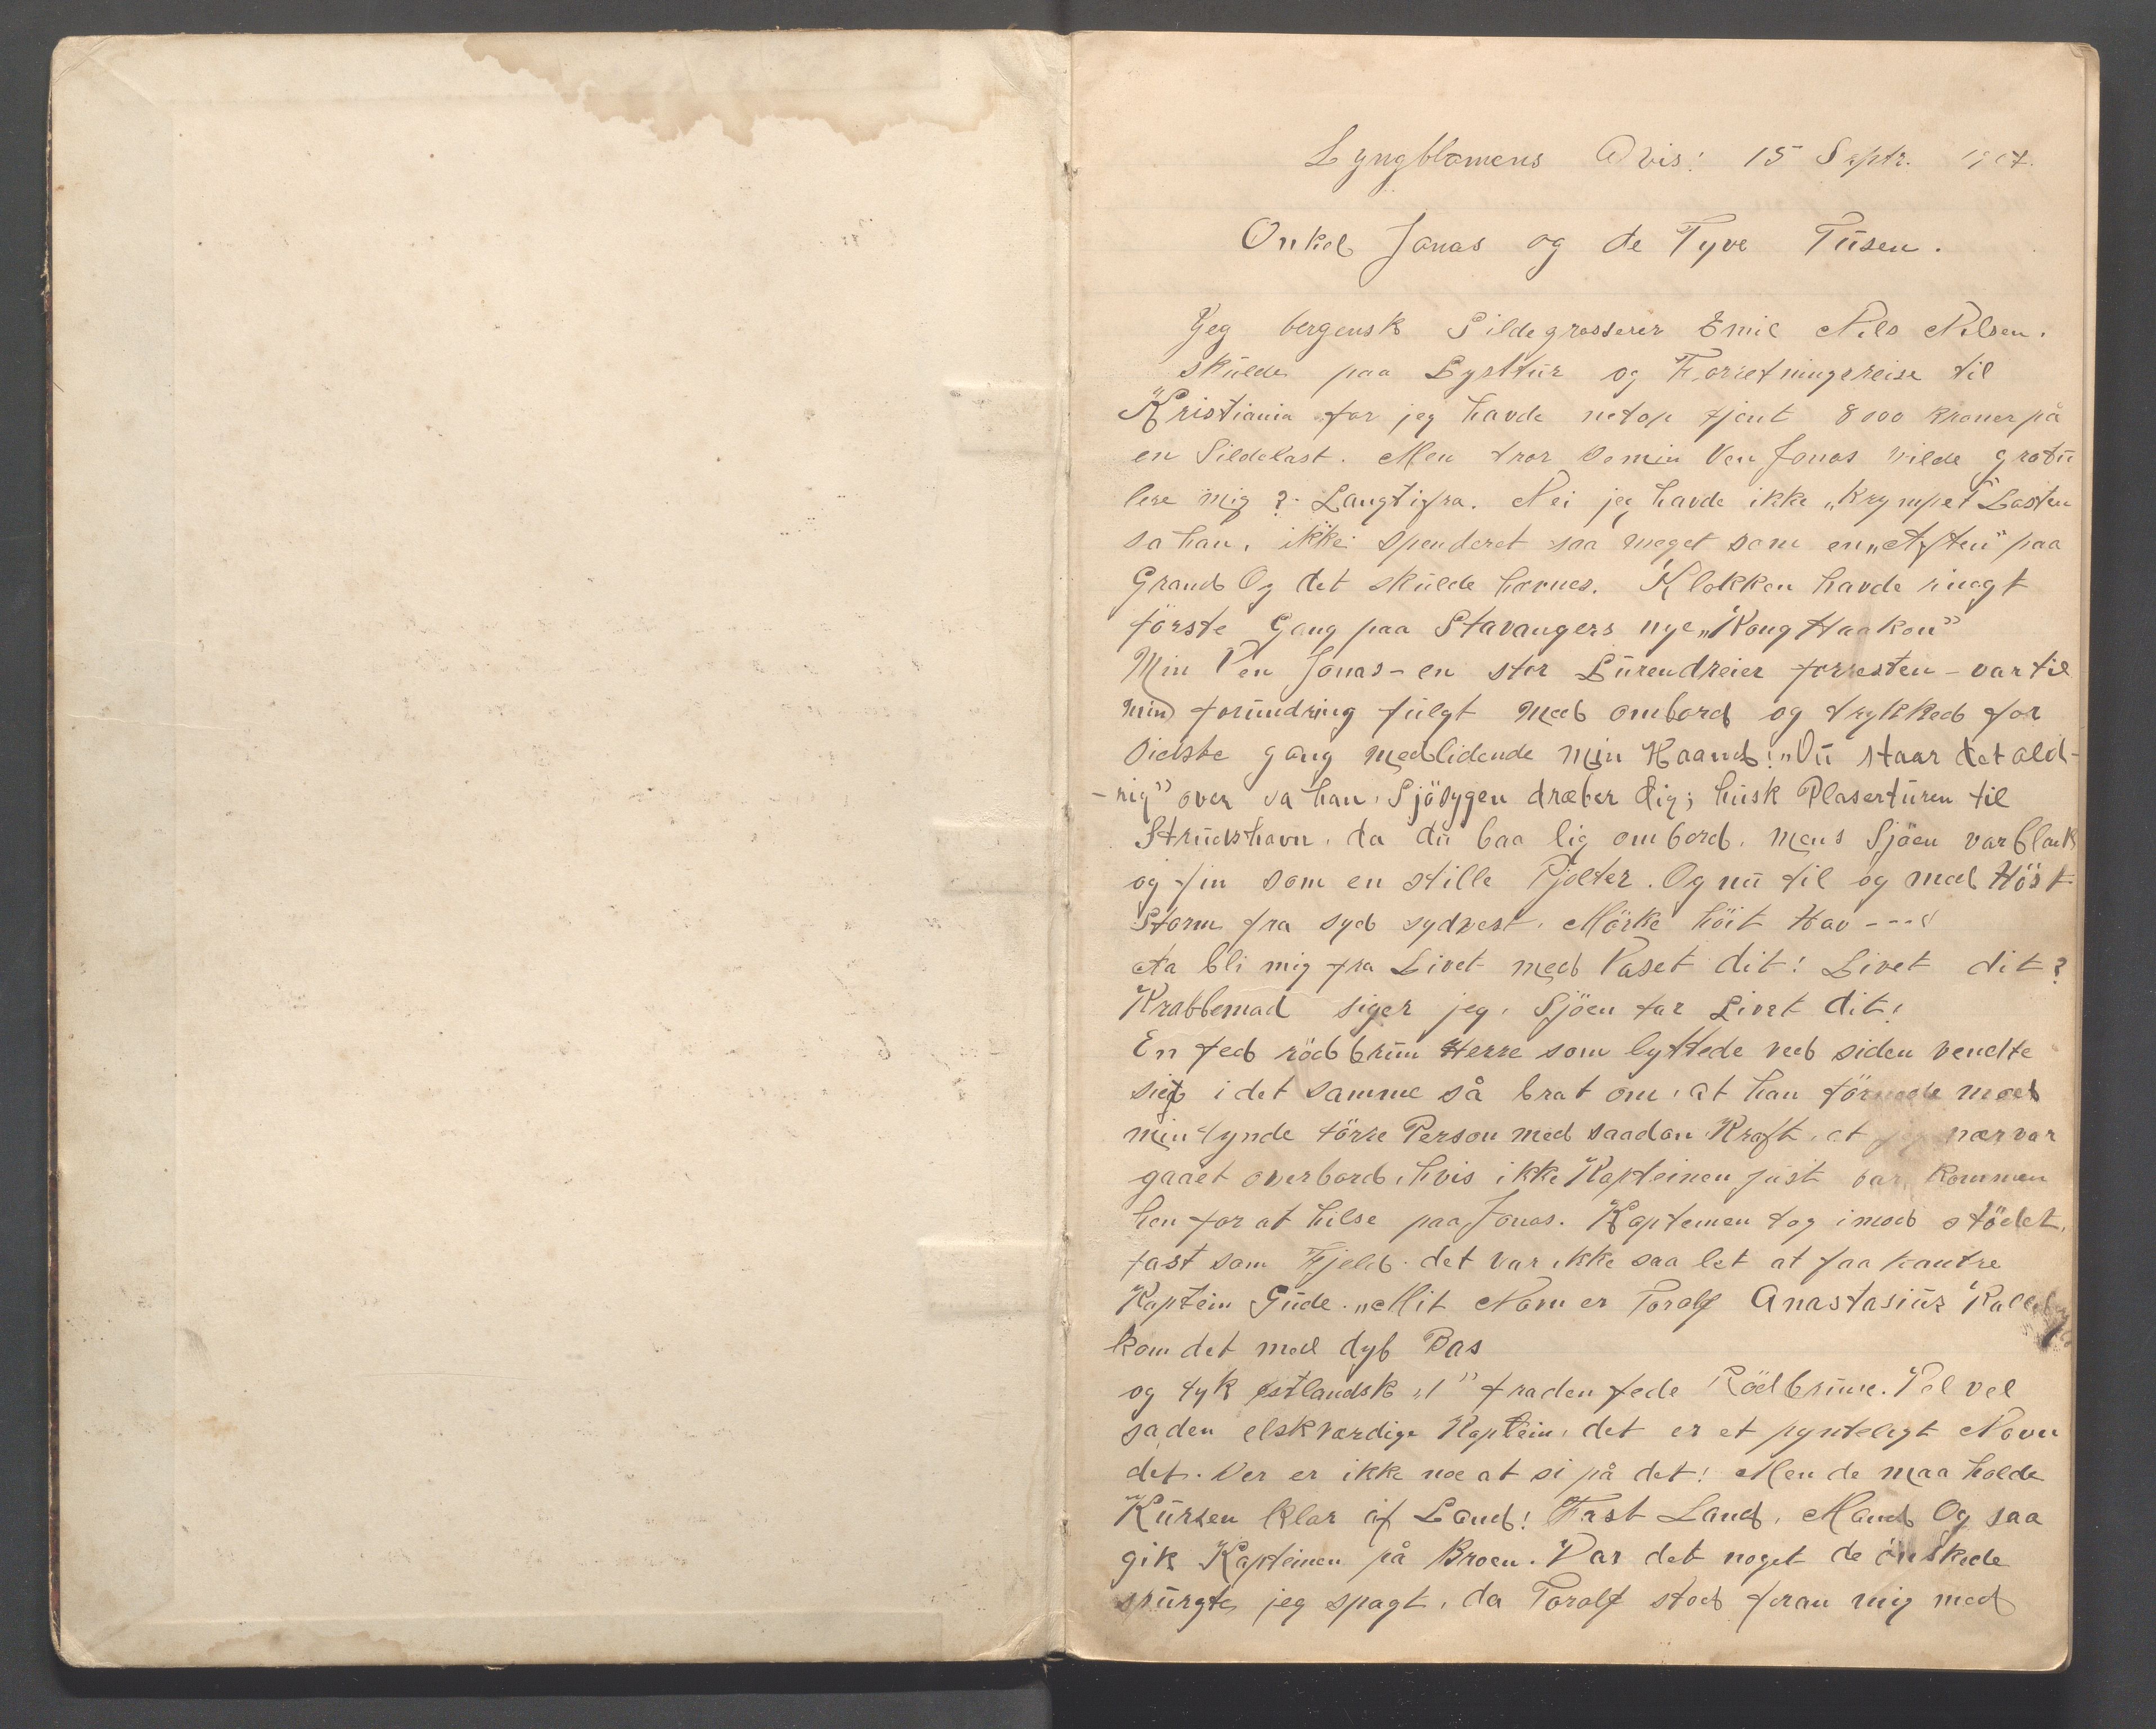 Lyngblomens Avis: 15 Septr.
Onkel Jonas og de Tyve Tusen.
Jeg bergensk Sildegrosserer Emil Nils Nilsen.
skulde paa Lysttur og Forretningsreise til
Kristiania for jeg havde netop tjent 8000 kroner på
en Sildelast. Men tror De min Ven Jonas vilde gratu
lere mig? - Langtifra. Nei jeg havde ikke „krympet" Lasten
sa han, ikke spenderet saa meget som en „Aften" paa
Grand Og det skulde hævnes. Klokken havde ringt
förste Gang paa Stavangers nye „Kong Haakon"
Min Ven Jonas - en stor Lurendreier forresten - var til
min forundring fulgt med ombord og trykked for
sidste gang medlidende min Haand! „Du staar det ald-
- rig" over sa han, Sjösygen dræber dig; husk Plaserturen til
Strudshavn, da du laa lig ombord, mens Sjöen var blank
og fin som en stille Pjolter. Og nu til og med Höst
Storm fra syd sydvest, Mörke höit Hav ---"
Aa bli mig fra Livet med Vaset dit! Livet dit?
Krabbemad siger jeg, Sjöen tar Livet dit!
En fed rödbrun Herre som lyttede ved siden vendte
sig i det samme så brat om, at han törnede mod
min tynde törre Person med saadan Kraft, at jeg nær var
gaaet overbord, hvis ikke Kapteinen just var kommen
hen for at hilse paa Jonas. Kapteinen tog imod stödet,
fast som Fjeld. det var ikke saa let at faa kantre
Kaptein Gude. „Mit Navn er Toralf Anastasius
kom det med dyb Bas
og tyk östlandsk „l" fra den fede Rödbrune. Vel vel
sa den elskværdige Kaptein, det er et pynteligt Navn
det. Der er ikke noe at si på det! Men de maa holde
Kursen klar af Land! Fast Land, Mand Og saa
gik Kapteinen på Broen. Var det noget de önskede
spurgte jeg spagt, da Toralf stod foran mig med